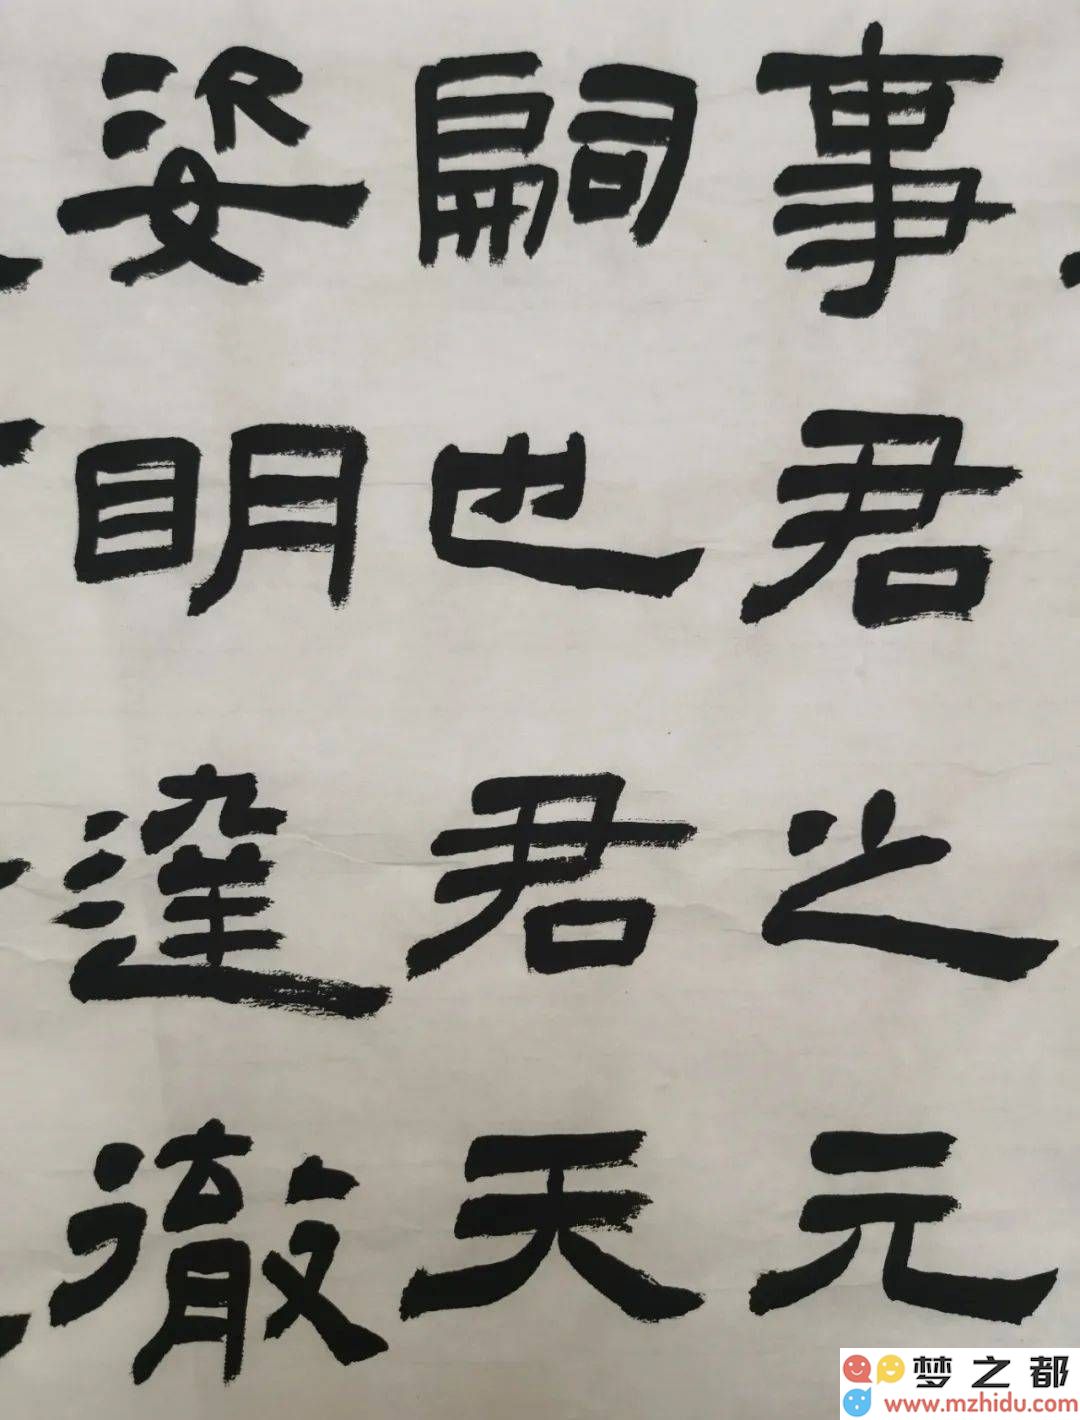 事君之元
嗣也君天
姿明達徹
梦之都
www.mzhidu.com